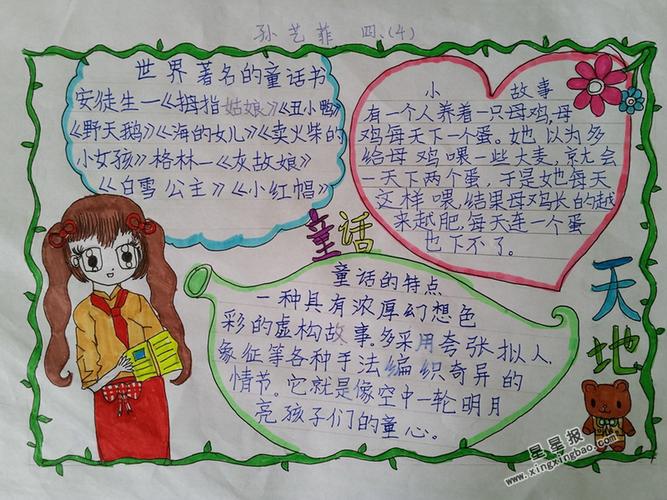 孙艺菲 四、(4)
世界著名的童话书
安徒生—《拇指姑娘》《丑小鸭》
《野天鹅》《海的女儿》《卖火柴的
小女孩》格林—《灰故娘》
《白雪公主》《小红帽》
小 故事
有一个人养着一只母鸡,母
鸡每天下一个蛋。她以为多
给母鸡喂一些大麦,就会
一天下两个蛋,于是她每天
这样喂,结果母鸡长的越
来越肥,每天连一个蛋
也下不了。
童话
天地
童话的特点
一种具有浓厚幻想色
彩的虚构故事。多采用夸张拟人、
象征等各种手法编织奇异的
情节。它就是像空中一轮明月
亮孩子们的童心。
星星报
www.xingxingbao.com